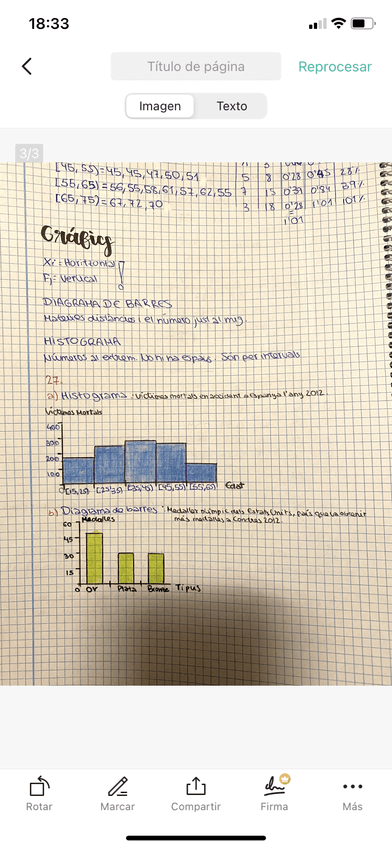 18:33
Título de página
Reprocesar
Imagen
Texto
3/3
[45, 55) = 45, 45, 47, 50, 51 5 8 0'28 0'45 28%
[55, 65) = 56, 55, 58, 61, 57, 62, 55 7 15 0'39 0'84 39%
[65, 75) = 67, 72, 70 3 18 0'28 1'01 101%
1'01
Gràfics
Xi = Horitzontal
Fi = Vertical
!
DIAGRAMA DE BARRES
Mateixes distàncies i el número just al mig.
HISTOGRAMA
Números al extrem. No hi ha espais. Són per intervals
27.
a) Histograma: Víctimes mortals en accident a Espanya l'any 2012.
Víctimes Mortals
400
300
200
100
0 [15,25) [25,35) [35,45) [45,55) [55,65) Edat
b) Diagrama de barres: Medalles olímpic dels Estats Units, país que va obtenir
més medalles a Londres 2012.
Medalles
60
45
30
15
0 Or Plata Bronze Tipus
Rotar
Marcar
Compartir
Firma
Más